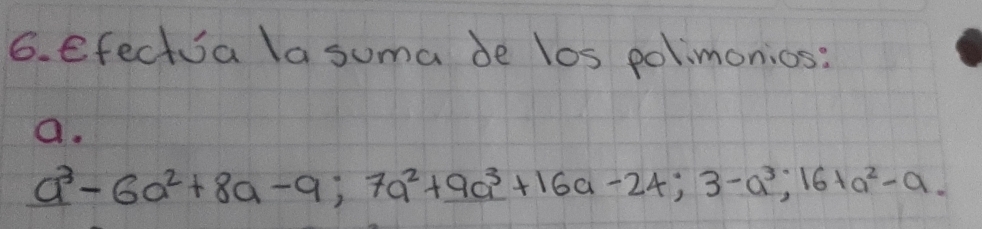 6. Efectúa la suma de los polimonios:
a.
a³-6a²+8a-9; 7a²+9a³+16a-24; 3-a³; 16+a²-a.